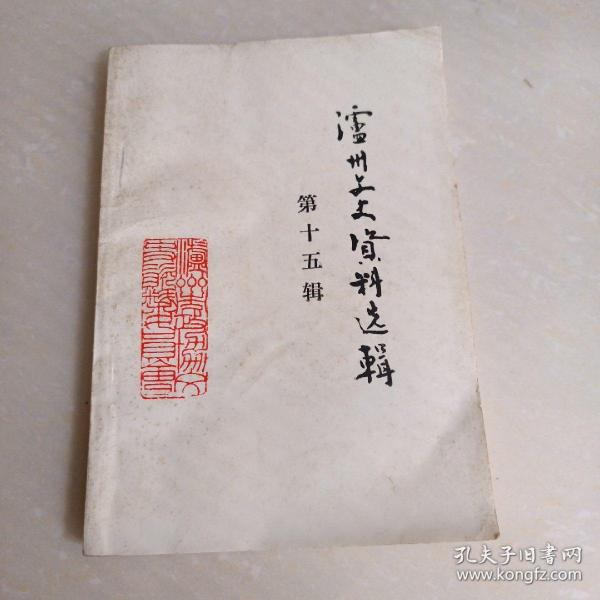 瀘州文史資料选輯
第十五辑
孔夫子旧书网
www.kongfz.com